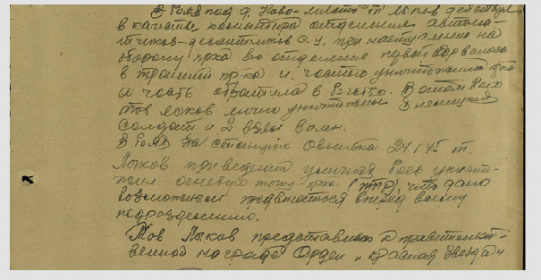 В боях под д. Ново- т. Лыков действуя
в качестве командира отделения автомат-
чиков-десантников С.У. при наступлении на
оборону пр-ка его отделение первым ворвалось
в траншеи пр-ка и частью уничтожила пр-ка
а часть обратила в бегство. В этом бою
тов Лыков лично уничтожил 3 немецких
солдат и 2 взял в плен.
В боях за станцию 24/1 45 т.
Лыков при ведении уличных боев уничто-
жил огневую точку пр-ка (ПТР), что дало
возможность продвигаться вперед всему
подразделению.
Тов Лыков представлен к правительст-
венной награде Орден "Красная Звезда"